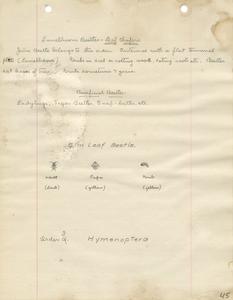 Lamellicorn Beetles - Leaf Chafers
June Beetle belongs to this order. Antennae with a flat terminal
(Lamellicorn) Grubs on and in rotting wood, eating roots etc. Beetles
eat leaves of trees. Grubs sometimes
Beneficial Beetles
Ladybugs, Tiger Beetles, etc.
Elm Leaf Beetle.
Adult Pupa Grub
(dark) (yellow) (yellow)
Order 3. Hymenoptera
45